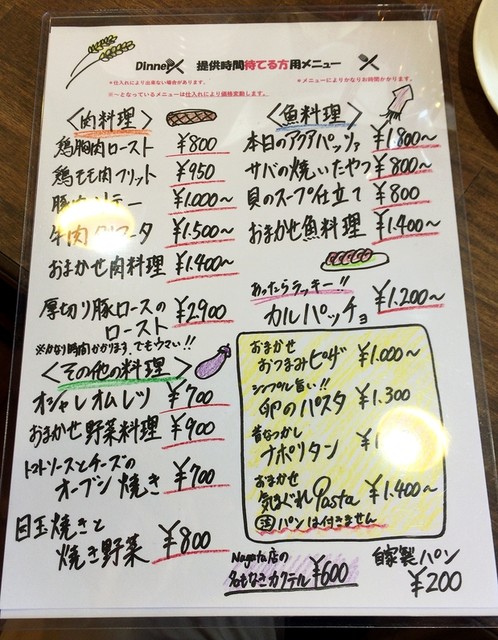 Dinner 提供時間待てる方用メニュー
*仕入れにより出来ない場合があります。
*メニューによりかなりお時間かかります。
※〜となっているメニューは仕入れにより価格変動します。
<肉料理>
鶏胸肉ロースト ¥800
鶏モモ肉フリット ¥950
¥1.000〜
牛肉 ¥1.500〜
おまかせ肉料理 ¥1.400〜
厚切り豚ロースの
ロースト ¥2900
※かなり時間かかります でもウマい!!
<その他の料理>
オシャレオムレツ ¥700
おまかせ野菜料理 ¥900
トマトソースとチーズの
オーブン焼き ¥700
目玉焼きと
焼き野菜 ¥800
<魚料理>
本日のアクアパッツァ ¥1.800〜
サバの焼いたやつ ¥800〜
貝のスープ仕立て ¥800
おまかせ魚料理 ¥1.400〜
あったらラッキー!!
カルパッチョ ¥1.200〜
おまかせ
おつまみピザ ¥1.000〜
シンプル旨い!!
卵のパスタ ¥1.300
昔なつかし
ナポリタン
おまかせ
気まぐれPasta ¥1.400〜
注 パンは付きません
Nagata店の
名もなきカクテル ¥600
自家製パン
¥200